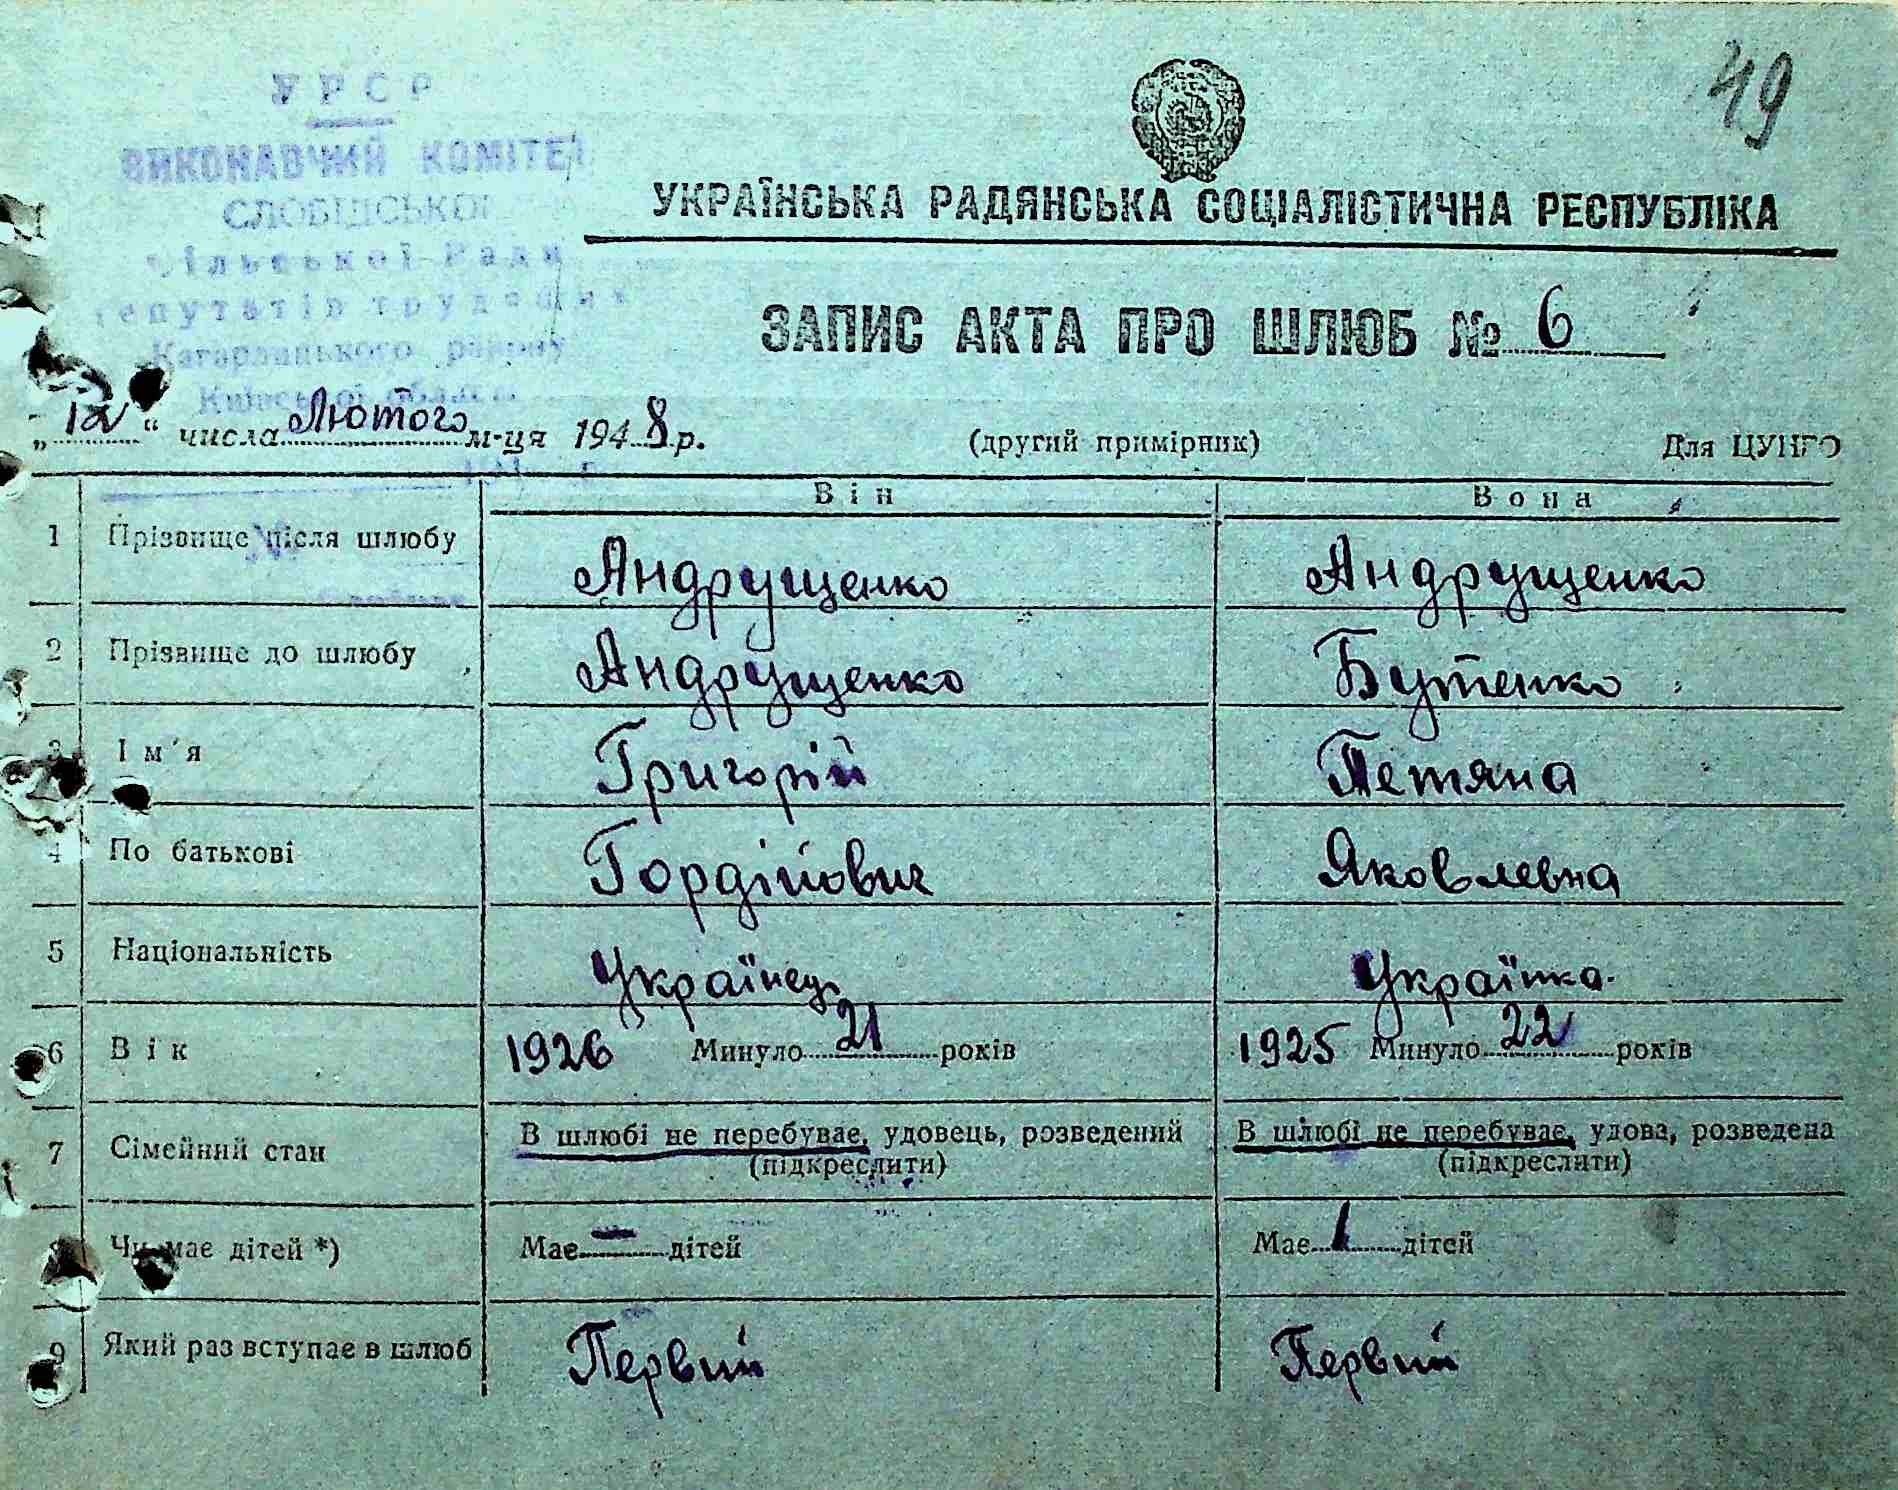 49
УРСР
ВИКОНАВЧИЙ КОМІТЕТ
СЛОБІДСЬКОЇ
Сільської Ради
депутатів трудящих
Кагарлицького району
Київської області
УКРАЇНСЬКА РАДЯНСЬКА СОЦІАЛІСТИЧНА РЕСПУБЛІКА
ЗАПИС АКТА ПРО ШЛЮБ № 6
„12“ числа Лютого м-ця 1948 р. (другий примірник) Для ЦУНГО
Він Вона
1 Прізвище після шлюбу Андрущенко Андрущенко
2 Прізвище до шлюбу Андрущенко Бутенко
3 Ім'я Григорій Тетяна
4 По батькові Гордійович Яковлевна
5 Національність Українець Українка
6 Вік 1926 Минуло 21 років 1925 Минуло 22 років
7 Сімейний стан В шлюбі не перебуває, удовець, розведений В шлюбі не перебуває, удова, розведена
(підкреслити) (підкреслити)
8 Чи має дітей *) Має — дітей Має 1 дітей
9 Який раз вступає в шлюб Первий Первий